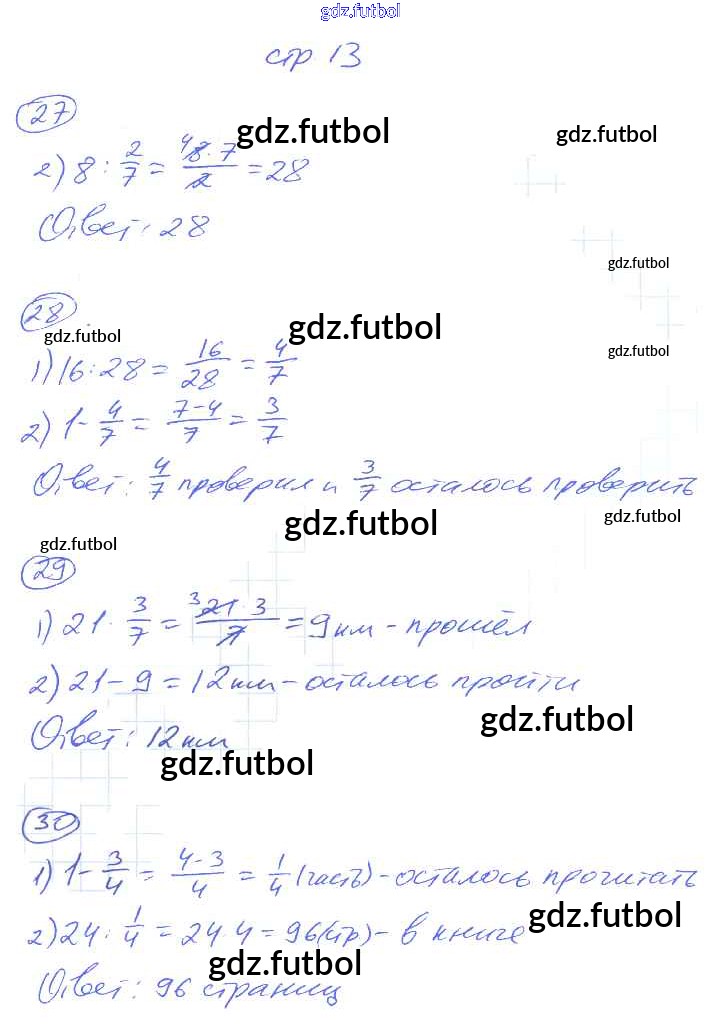 gdz.futbol
стр 13
27
gdz.futbol
gdz.futbol
2) 8 : 2/7 = 4 8·7/2 = 28
Ответ: 28
gdz.futbol
28
gdz.futbol
gdz.futbol
gdz.futbol
1) 16:28 = 16/28 = 4/7
2) 1 - 4/7 = 7-4/7 = 3/7
Ответ: 4/7 проверил и 3/7 осталось проверить
gdz.futbol
gdz.futbol
gdz.futbol
29
1) 21 · 3/7 = 3 21·3/7 = 9км - прошёл
2) 21 - 9 = 12км - осталось пройти
gdz.futbol
Ответ: 12км
gdz.futbol
30
1) 1 - 3/4 = 4-3/4 = 1/4 (часть) - осталось прочитать
gdz.futbol
2) 24 : 1/4 = 24·4 = 96(стр) - в книге
gdz.futbol
Ответ: 96 страниц